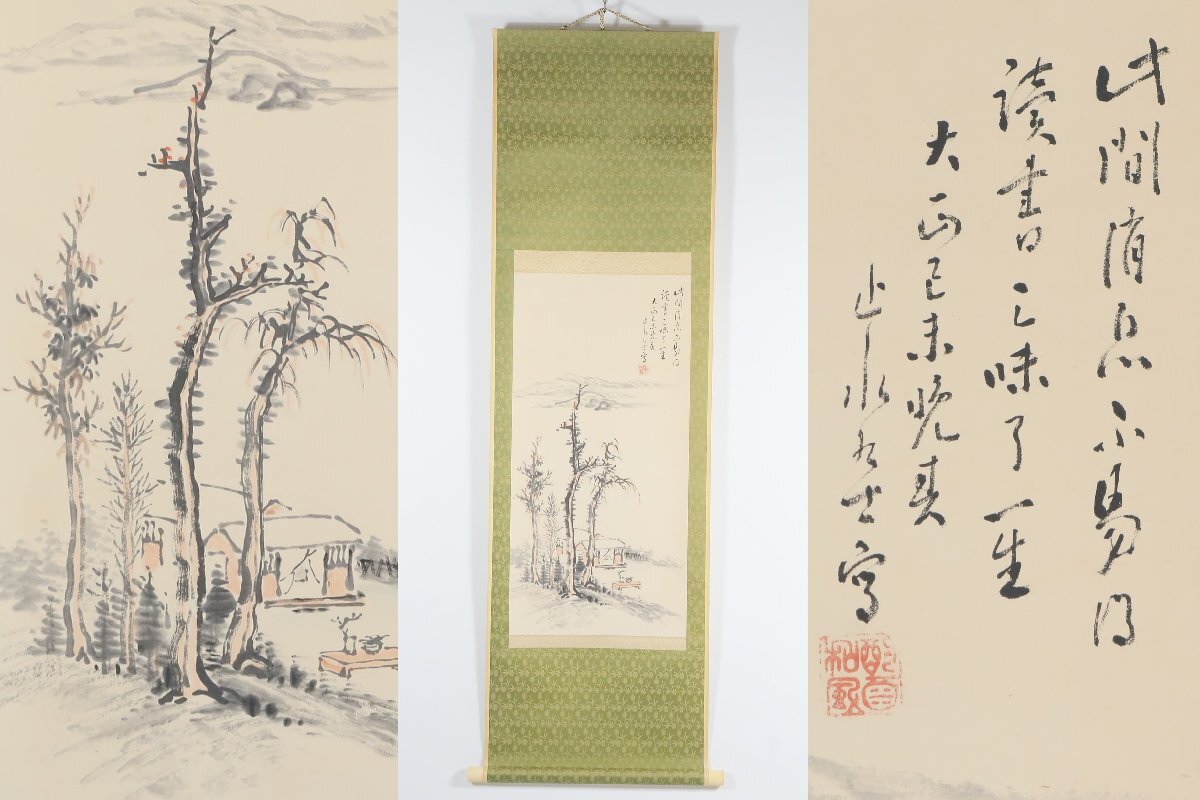 此間消息不易得
讀書三昧了一生
大正己未晩春
止水居士寫